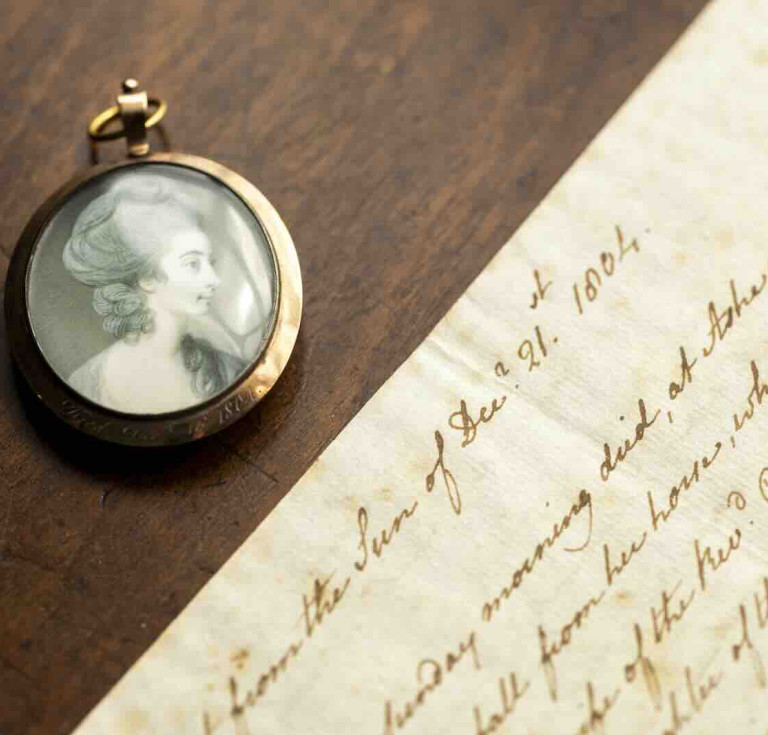 from the Sun of Decr. 21.st 1804.
Sunday morning died, at Ashe
fall from her horse,
of the Revd.
of